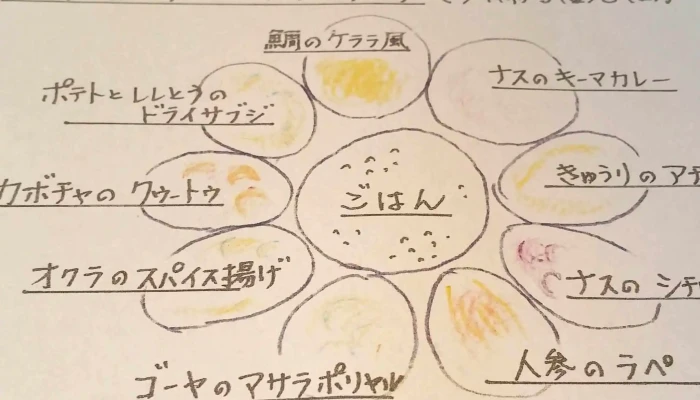 鯛のケララ風
ナスのキーマカレー
ポテトとししとうの
ドライサブジ
きゅうりのアチ
カボチャのクゥートゥ
ごはん
オクラのスパイス揚げ
ナスのシチ
人参のラペ
ゴーヤのマサラポリヤル